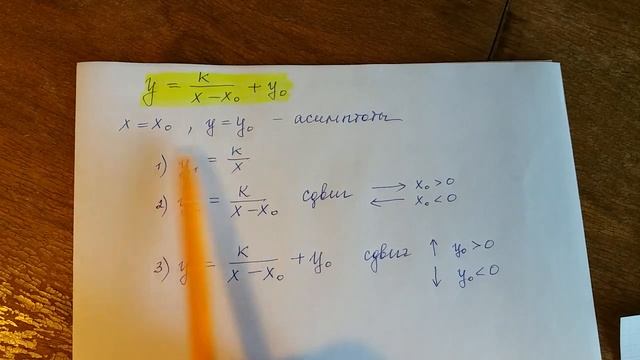 y = K / (x – x₀) + y₀
x = x₀ , y = y₀ – асимптоты
1) y₁ = K / x
2) = K / (x – x₀) сдвиг → x₀ > 0
← x₀ < 0
3) y = K / (x – x₀) + y₀ сдвиг ↑ y₀ > 0
↓ y₀ < 0